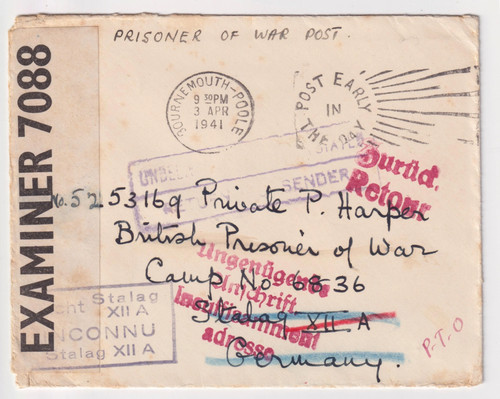 PRISONER OF WAR POST.
EXAMINER 7088
BOURNEMOUTH-POOLE
9 30PM
3 APR
1941
POST EARLY
IN
THE DAY
SENDER
Zurück.
Retour
No. 52 53169 Private P. Harper
British Prisoner of War
Camp No 6836
Stalag XII A
Germany.
Ungenügende
Anschrift
Insuffisamment
adresse
Stalag
XII A
INCONNU
Stalag XII A
P.T.O